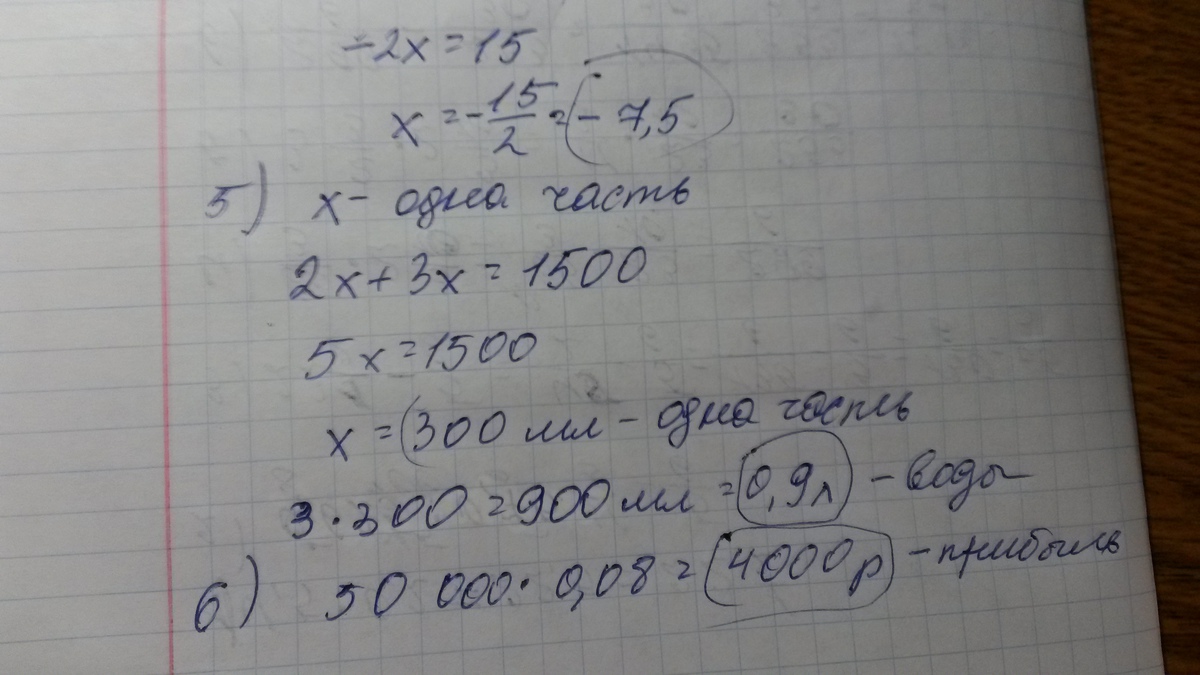 -2x = 15
x = -15/2 = -7,5
5) x - одна часть
2x + 3x = 1500
5x = 1500
x = 300 мл - одна часть
3·300 = 900 мл = 0,9л - воды
6) 50 000 · 0,08 = 4000р - прибыль